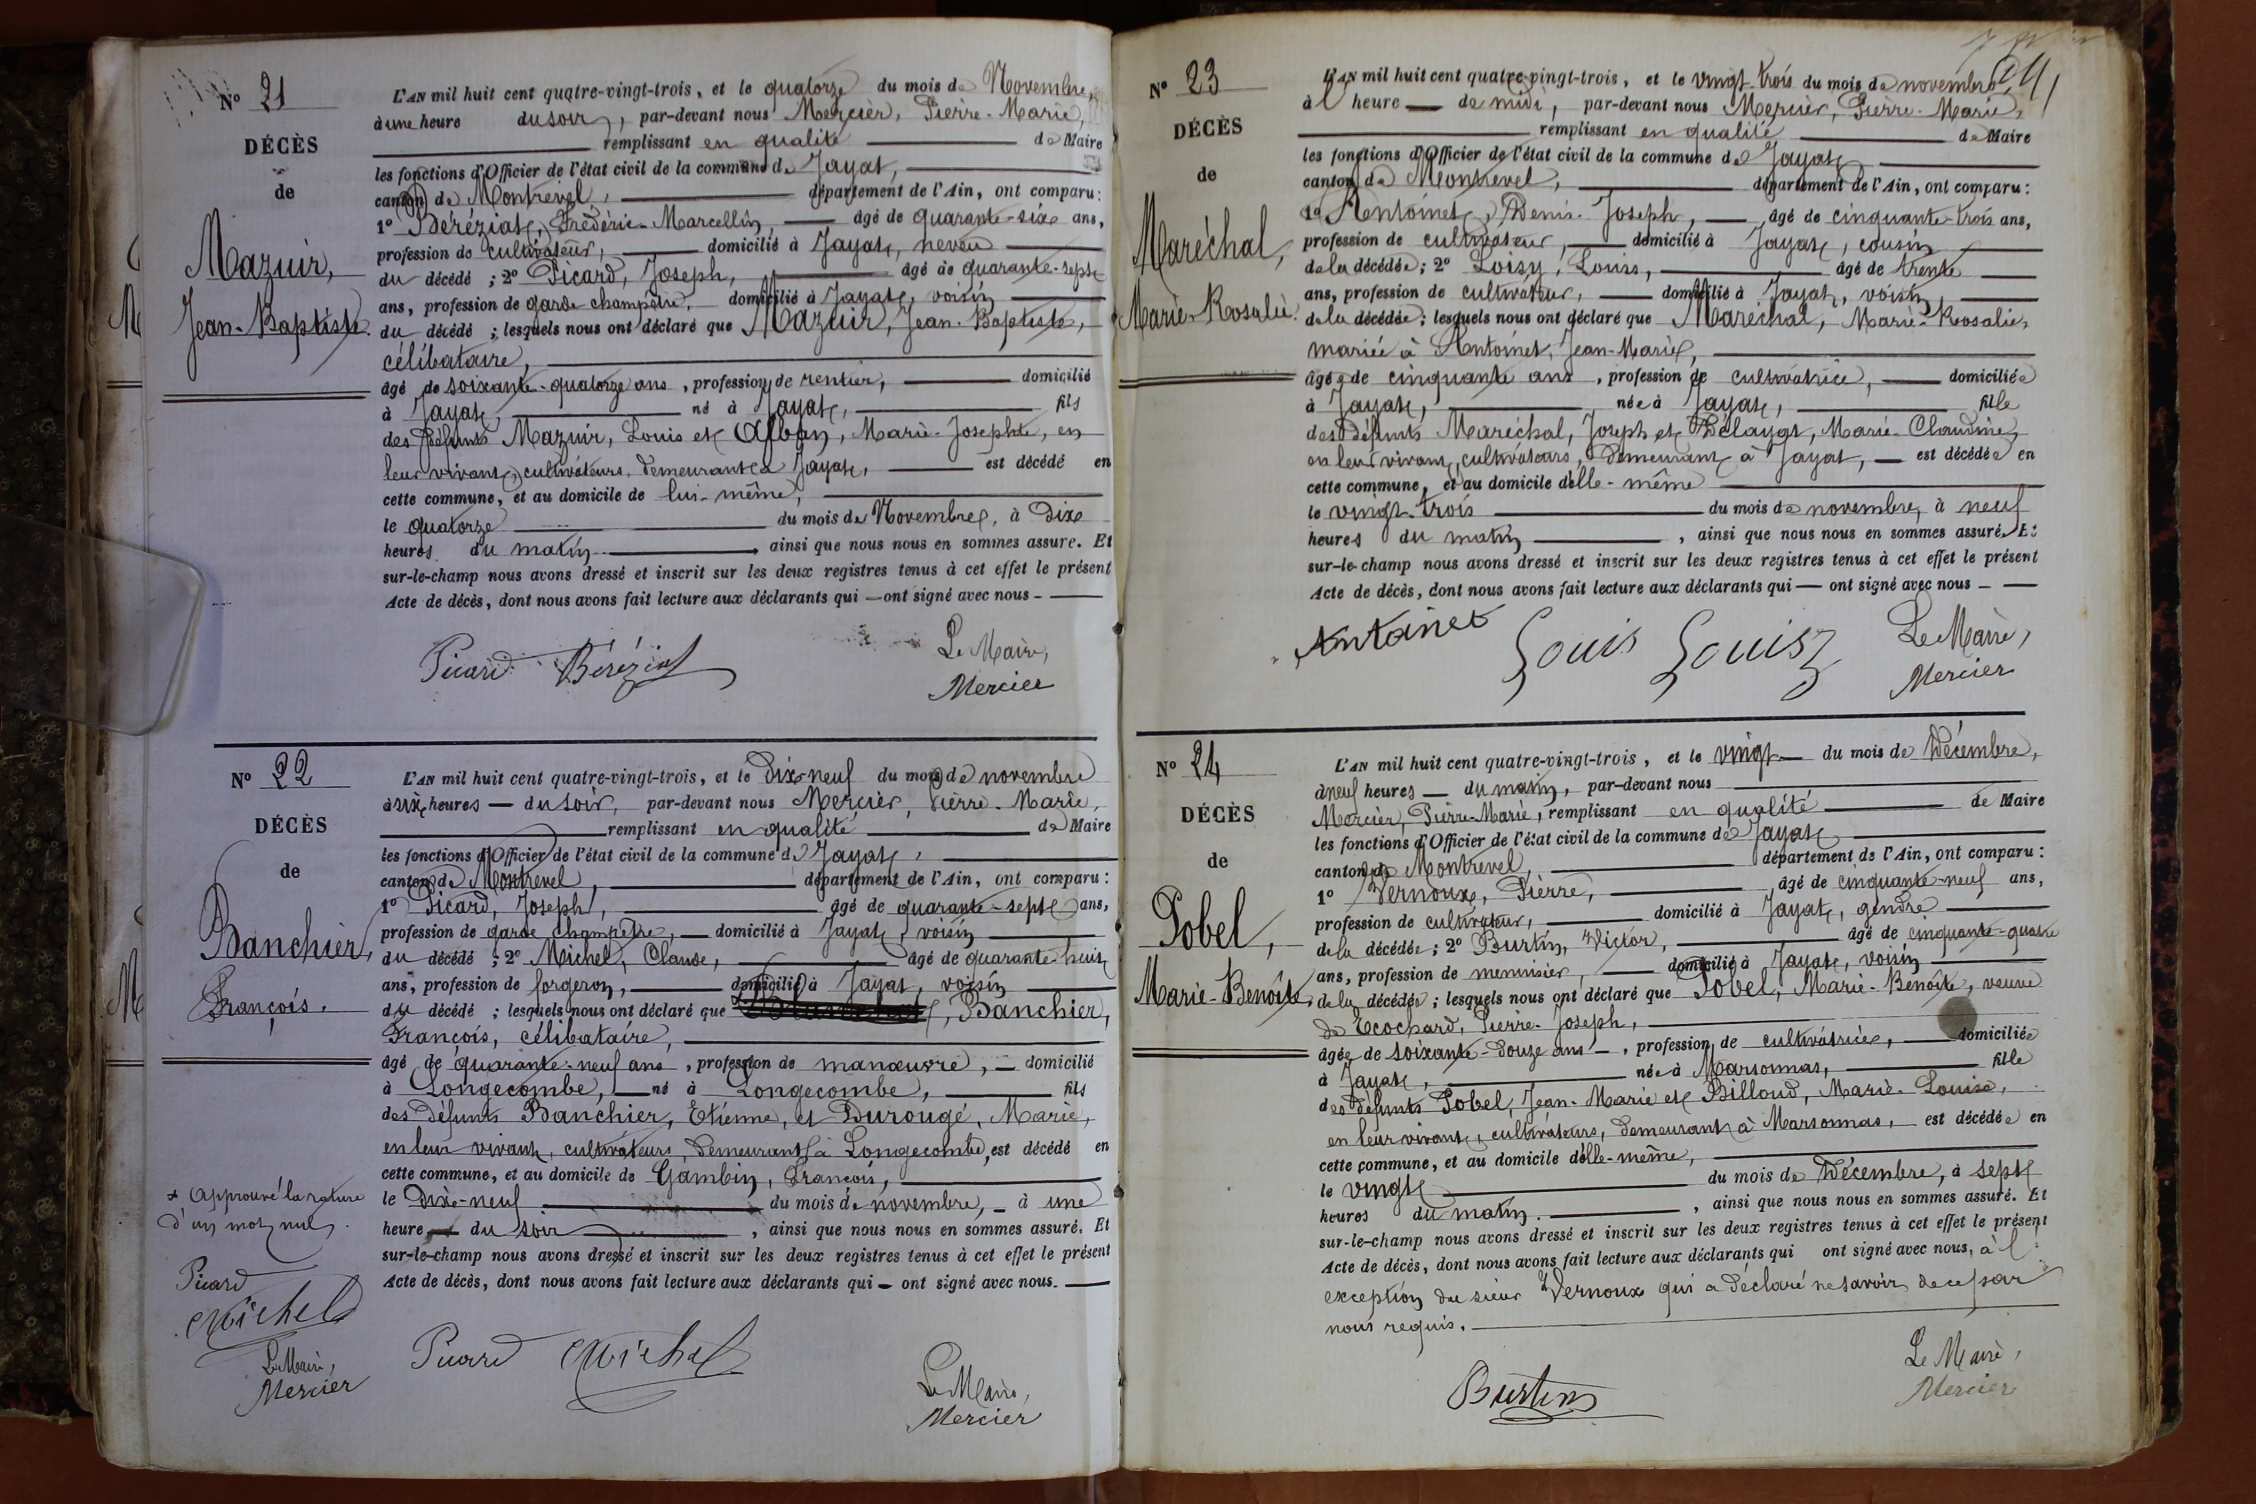 N° 21
DÉCÈS
de
Mazuir,
Jean-Baptiste.
L'AN mil huit cent quatre-vingt-trois, et le quatorze du mois de Novembre,
à une heure du soir, par-devant nous Mercier, Pierre-Marie,
remplissant en qualité de Maire
les fonctions d'Officier de l'état civil de la commune de Jayat,
canton de Montrevel, département de l'Ain, ont comparu:
1° Béréziat, Frédéric-Marcellin, âgé de quarante-six ans,
profession de cultivateur, domicilié à Jayat, neveu
du décédé; 2° Picard, Joseph, âgé de quarante-sept
ans, profession de garde champêtre, domicilié à Jayat, voisin
du décédé; lesquels nous ont déclaré que Mazuir, Jean-Baptiste,
célibataire,
âgé de soixante-quatorze ans, profession de rentier, domicilié
à Jayat, né à Jayat, fils
des défunts Mazuir, Louis et Alban, Marie-Josephte, en
leur vivant, cultivateurs, demeurant à Jayat, est décédé en
cette commune, et au domicile de lui-même,
le quatorze du mois de Novembre, à dix
heures du matin, ainsi que nous nous en sommes assuré. Et
sur-le-champ nous avons dressé et inscrit sur les deux registres tenus à cet effet le présent
Acte de décès, dont nous avons fait lecture aux déclarants qui — ont signé avec nous —
Picard Béréziat
Le Maire,
Mercier
N° 22
DÉCÈS
de
Banchier,
François.
L'AN mil huit cent quatre-vingt-trois, et le dix-neuf du mois de novembre
à six heures — du soir, par-devant nous Mercier, Pierre-Marie,
remplissant en qualité de Maire
les fonctions d'Officier de l'état civil de la commune de Jayat,
canton de Montrevel, département de l'Ain, ont comparu:
1° Picard, Joseph, âgé de quarante-sept ans,
profession de garde champêtre, — domicilié à Jayat, voisin
du décédé; 2° Michel, Claude, âgé de quarante-huit
ans, profession de forgeron, domicilié à Jayat, voisin
du décédé; lesquels nous ont déclaré que Banchier,
François, célibataire,
âgé de quarante-neuf ans, profession de manœuvre, — domicilié
à Longecombe, — né à Longecombe, fils
des défunts Banchier, Etienne, et Durougé, Marie,
en leur vivant, cultivateurs, demeurant à Longecombe, est décédé en
cette commune, et au domicile de Gambin, François,
le dix-neuf du mois de novembre, — à une
heure du soir, ainsi que nous nous en sommes assuré. Et
sur-le-champ nous avons dressé et inscrit sur les deux registres tenus à cet effet le présent
Acte de décès, dont nous avons fait lecture aux déclarants qui — ont signé avec nous. —
x Approuvé la rature
d'un mot nul.
Picard
Michel
Le Maire,
Mercier
Picard Michel
Le Maire,
Mercier
N° 23
DÉCÈS
de
Maréchal,
Marie-Rosalie.
L'AN mil huit cent quatre-vingt-trois, et le vingt-trois du mois de novembre,
à l heure — de midi, par-devant nous Mercier, Pierre-Marie,
remplissant en qualité de Maire
les fonctions d'Officier de l'état civil de la commune de Jayat,
canton de Montrevel, département de l'Ain, ont comparu:
1° Antoinet, Denis-Joseph, — âgé de cinquante-trois ans,
profession de cultivateur, — domicilié à Jayat, cousin
de la décédée; 2° Loisy, Louis, âgé de trente
ans, profession de cultivateur, — domicilié à Jayat, voisin
de la décédée; lesquels nous ont déclaré que Maréchal, Marie-Rosalie,
mariée à Antoinet, Jean-Marie,
âgée de cinquante ans, profession de cultivatrice, — domiciliée
à Jayat, née à Jayat, fille
des défunts Maréchal, Joseph et Délayat, Marie-Claudine,
en leur vivant, cultivateurs, demeurant à Jayat, — est décédée en
cette commune, et au domicile d'elle-même
le vingt-trois du mois de novembre, à neuf
heures du matin, ainsi que nous nous en sommes assuré. Et
sur-le-champ nous avons dressé et inscrit sur les deux registres tenus à cet effet le présent
Acte de décès, dont nous avons fait lecture aux déclarants qui — ont signé avec nous —
Antoinet Louis
Le Maire,
Mercier
N° 24
DÉCÈS
de
Pobel,
Marie-Benoîte,
L'AN mil huit cent quatre-vingt-trois, et le vingt — du mois de Décembre,
à neuf heures — du matin, par-devant nous
Mercier, Pierre-Marie, remplissant en qualité de Maire
les fonctions d'Officier de l'état civil de la commune de Jayat
canton de Montrevel, département de l'Ain, ont comparu:
1° Vernoux, Pierre, âgé de cinquante-neuf ans,
profession de cultivateur, domicilié à Jayat, gendre
de la décédée; 2° Burtin, Victor, âgé de cinquante-quatre
ans, profession de menuisier, — domicilié à Jayat, voisin
de la décédée; lesquels nous ont déclaré que Pobel, Marie-Benoîte, veuve
de Ecochard, Pierre-Joseph,
âgée de soixante-douze ans —, profession de cultivatrice, — domiciliée
à Jayat, née à Marsonnas, fille
des défunts Pobel, Jean-Marie et Billoud, Marie-Louise,
en leur vivant, cultivateurs, demeurant à Marsonnas, est décédée en
cette commune, et au domicile d'elle-même,
le vingt du mois de Décembre, à sept
heures du matin, ainsi que nous nous en sommes assuré. Et
sur-le-champ nous avons dressé et inscrit sur les deux registres tenus à cet effet le présent
Acte de décès, dont nous avons fait lecture aux déclarants qui ont signé avec nous, à l'
exception du sieur Vernoux qui a déclaré ne savoir de ce par
nous requis.
Burtin
Le Maire,
Mercier